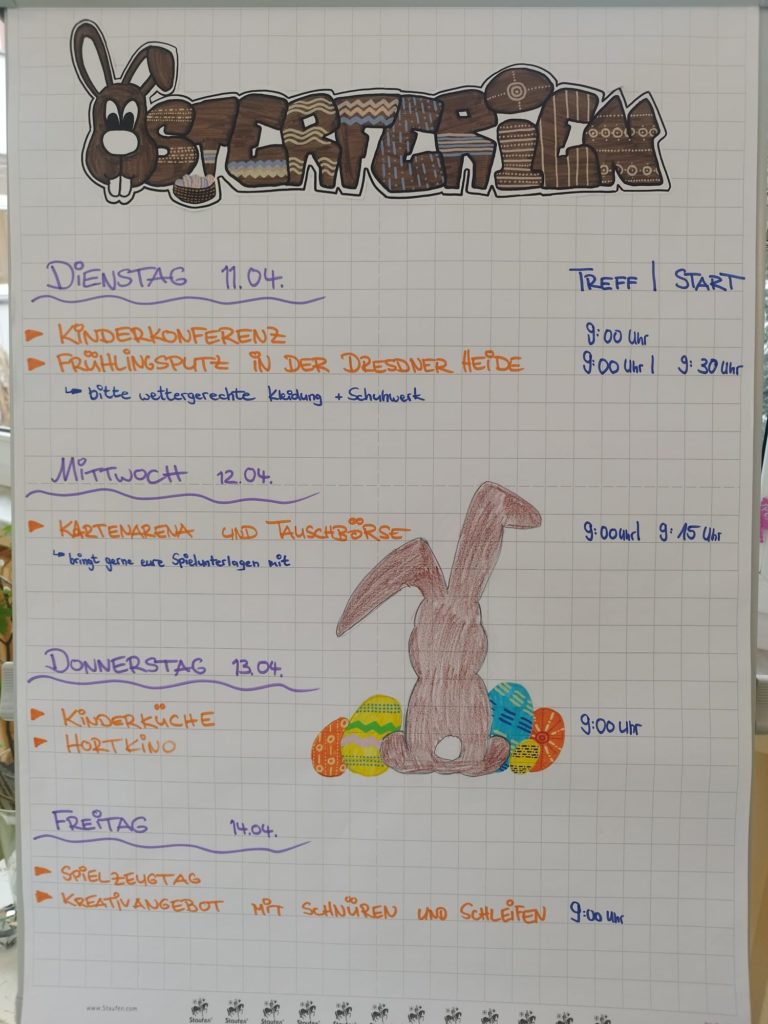 OSTERFERIEN
DIENSTAG 11.04. TREFF | START
KINDERKONFERENZ 9:00 Uhr
FRÜHLINGSPUTZ IN DER DRESDNER HEIDE 9:00 Uhr | 9:30 Uhr
bitte wettergerechte Kleidung + Schuhwerk
MITTWOCH 12.04.
KARTENARENA UND TAUSCHBÖRSE 9:00 Uhr | 9:15 Uhr
bringt gerne eure Spielunterlagen mit
DONNERSTAG 13.04.
KINDERKÜCHE 9:00 Uhr
HORTKINO
FREITAG 14.04.
SPIELZEUGTAG
KREATIVANGEBOT MIT SCHNÜREN UND SCHLEIFEN 9:00 Uhr
www.Staufen.com Staufen Staufen Staufen Staufen Staufen Staufen Staufen Staufen Staufen Staufen Staufen Staufen